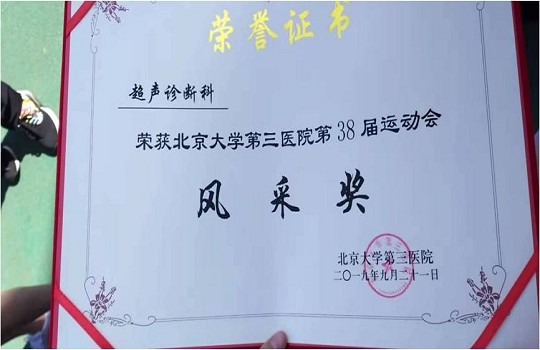 荣誉证书
超声诊断科
荣获北京大学第三医院第38届运动会
风采奖
北京大学第三医院
二〇一九年九月二十一日